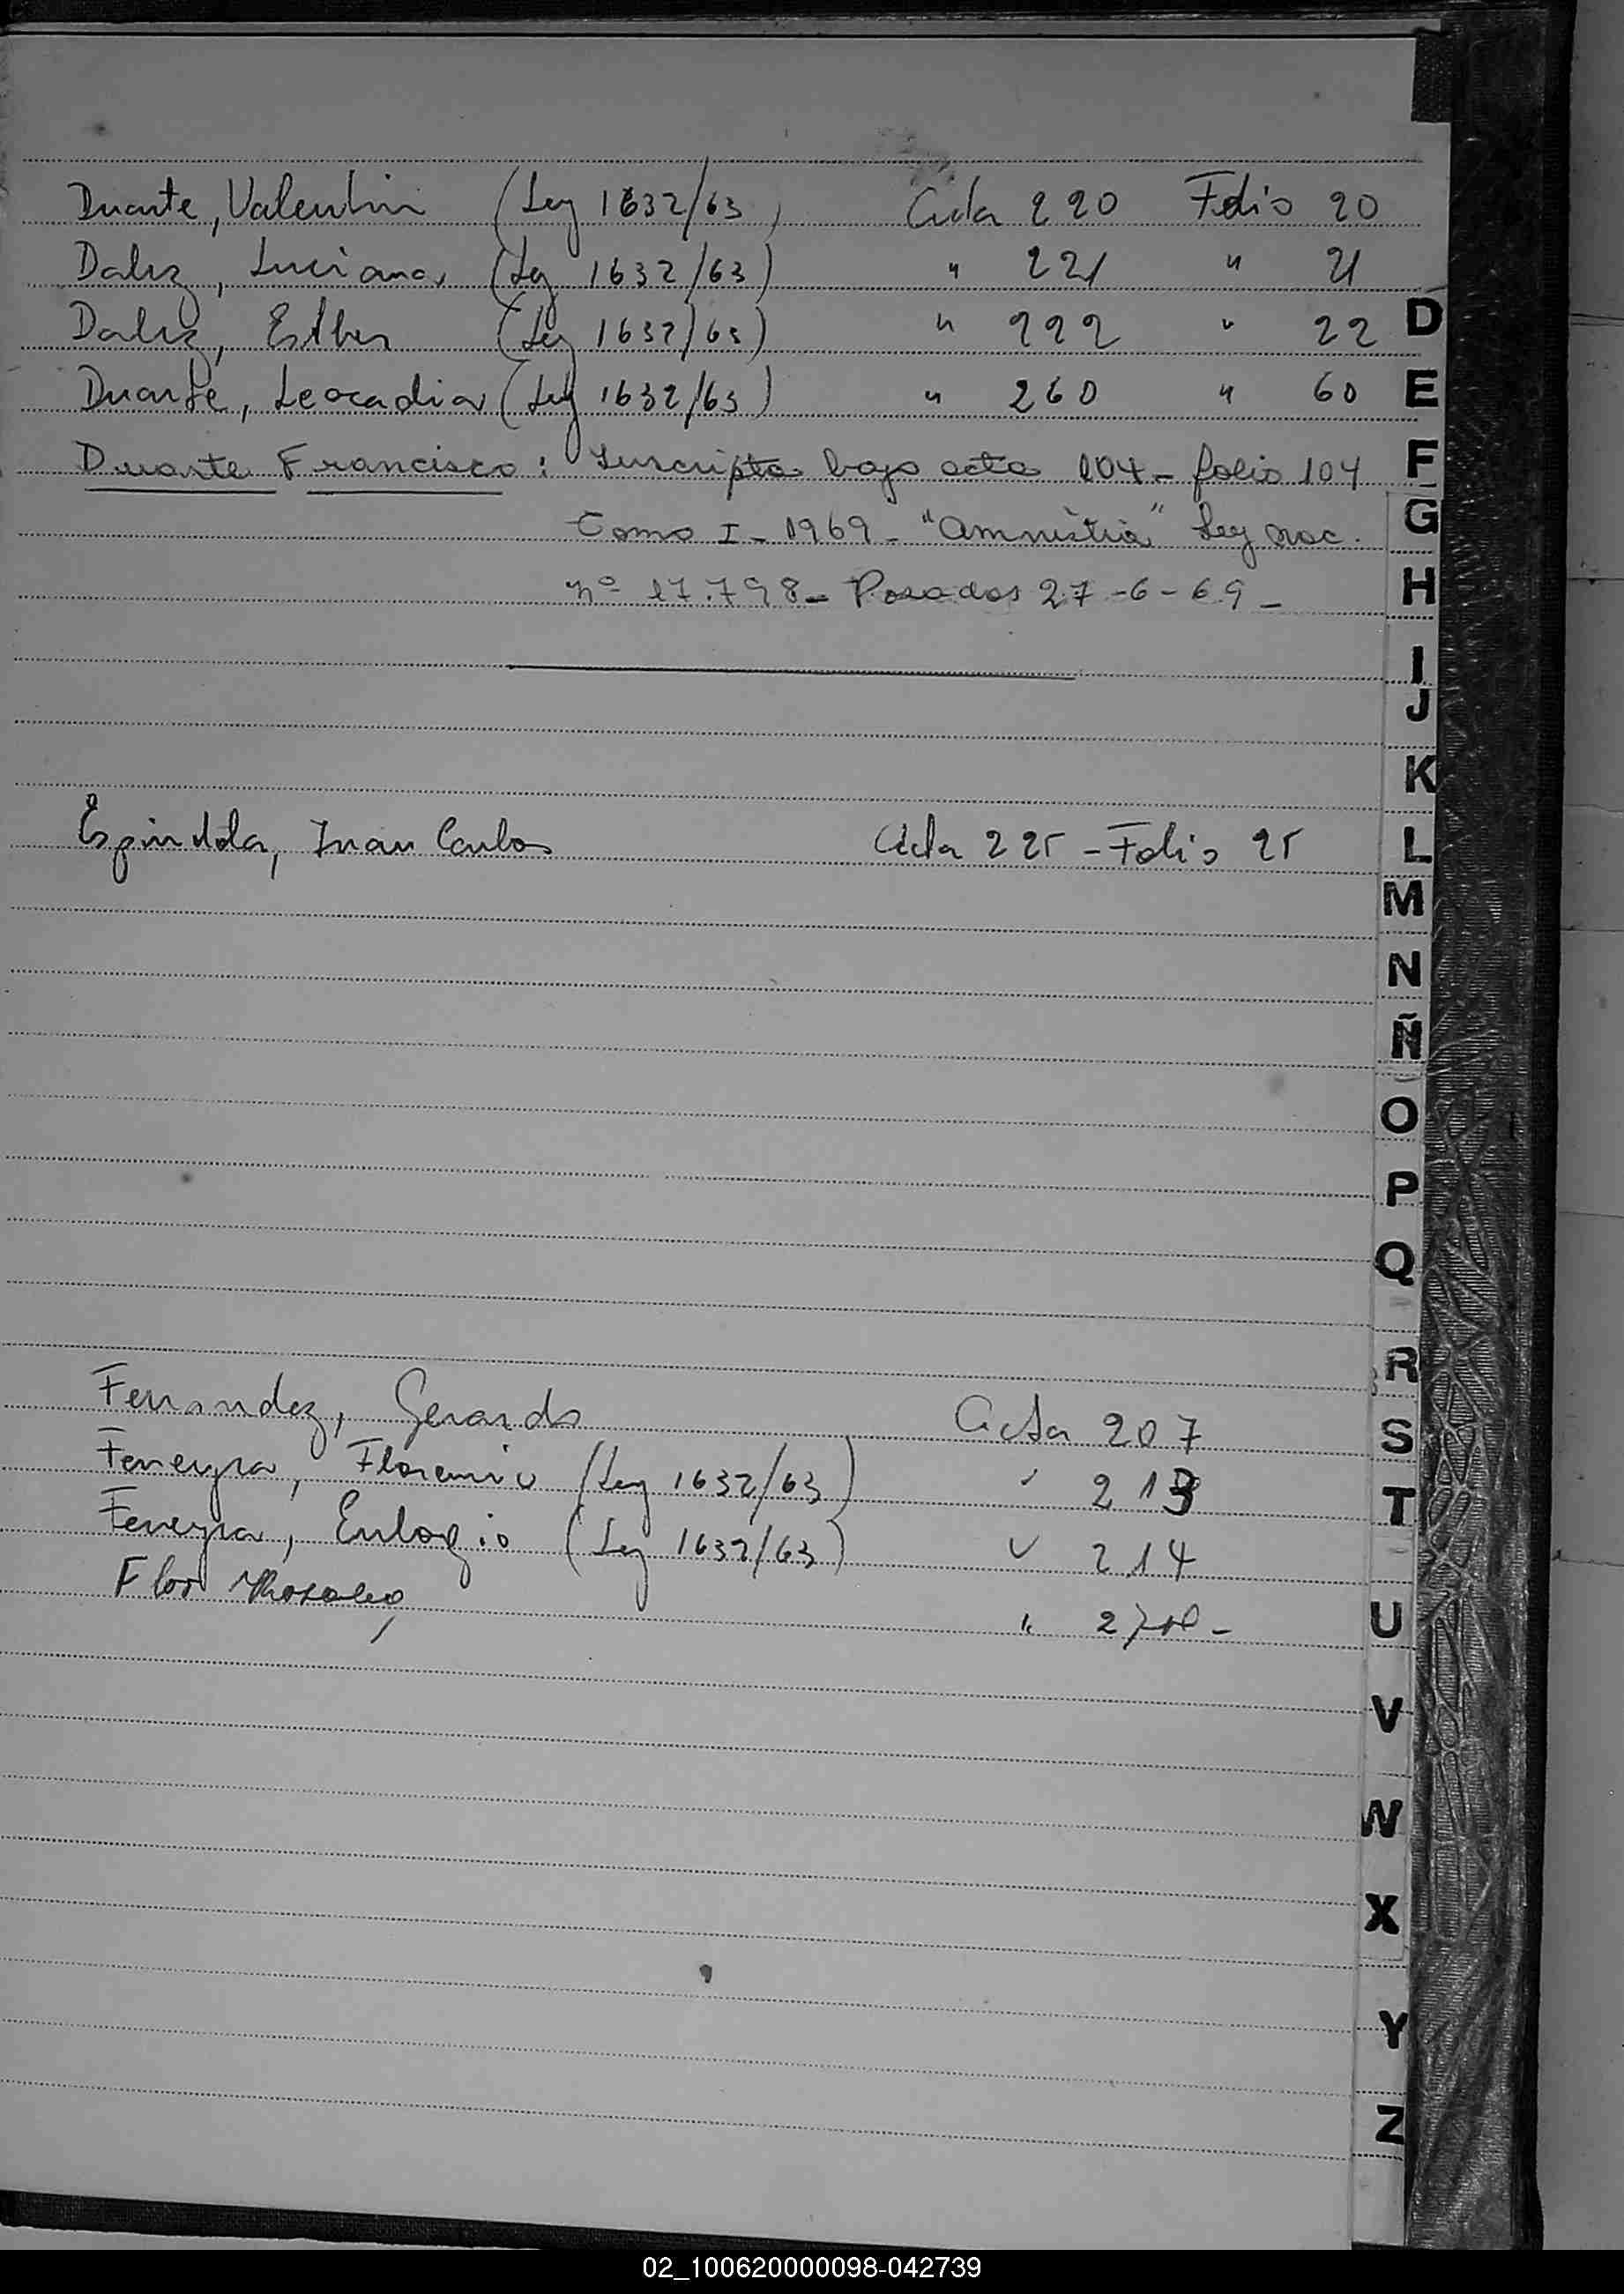 Duarte, Valentin (Ley 1632/63) Acta 220 Folio 20
Dalız, Luciana (Ley 1632/63) " 221 " 21
Dalız, Esther (Ley 1632/63) " 222 " 22
Duarte, Leocadia (Ley 1632/63) " 260 " 60
Duarte Francisco: Inscripta bajo acta 104 - folio 104
Tomo I - 1969 - "Amnistia" Ley Nac.
nº 17.798 - Posadas 27-6-69 -
Espindola, Juan Carlos Acta 225 - Folio 25
Fernandez, Gerardo Acta 207
Ferreyra, Florencio (Ley 1632/63) " 213
Ferreyra, Eulogio (Ley 1632/63) " 214
Flor "
D
E
F
G
H
I
J
K
L
M
N
Ñ
O
P
Q
R
S
T
U
V
W
X
Y
Z
02_100620000098-042739